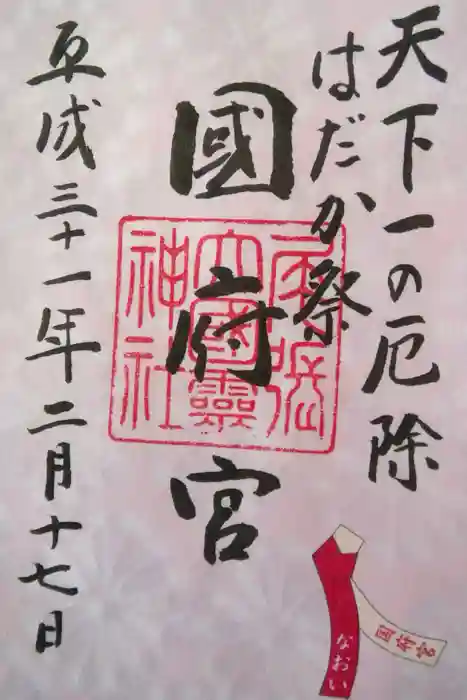 天下一の厄除
はだか祭
國府宮
尾張大國霊神社
平成三十一年二月十七日
なおい
国府宮